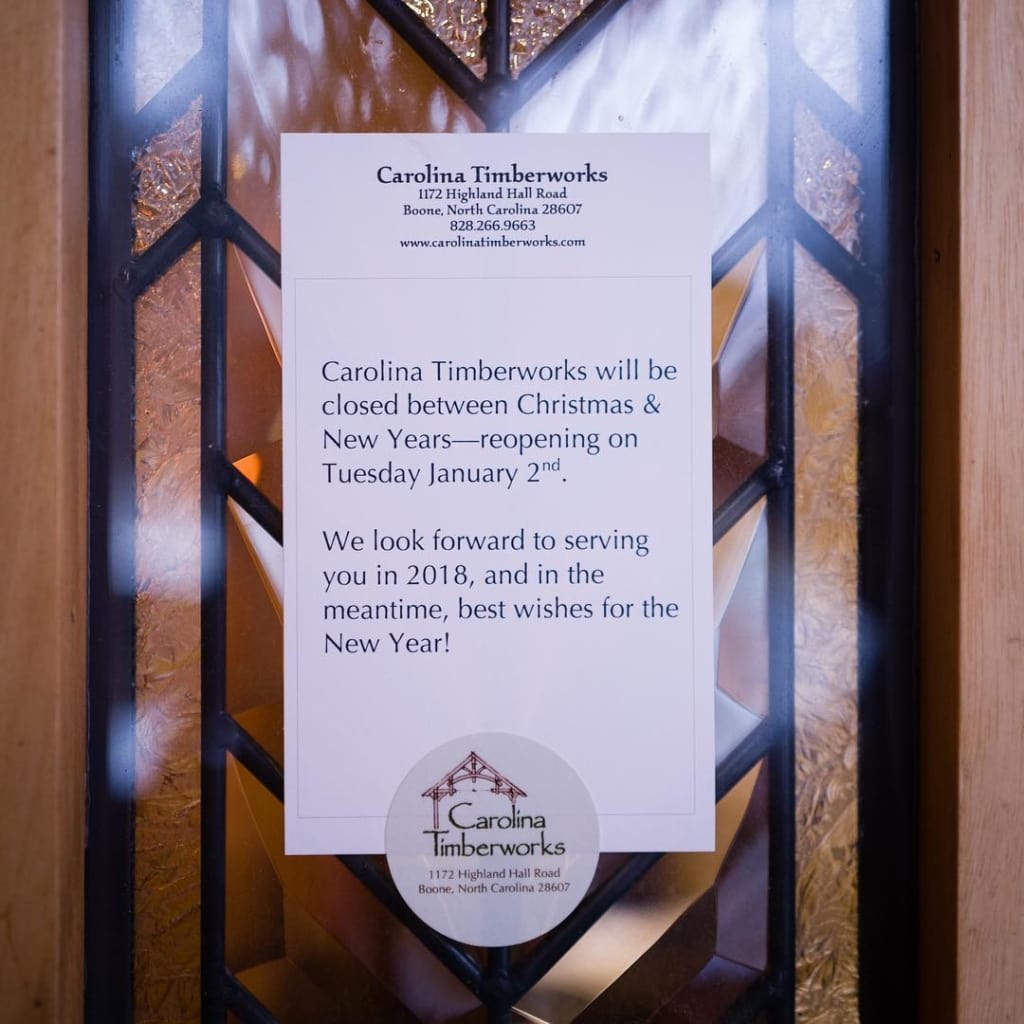 Carolina Timberworks
1172 Highland Hall Road
Boone, North Carolina 28607
828.266.9663
www.carolinatimberworks.com
Carolina Timberworks will be
closed between Christmas &
New Years—reopening on
Tuesday January 2nd.
We look forward to serving
you in 2018, and in the
meantime, best wishes for the
New Year!
Carolina
Timberworks
1172 Highland Hall Road
Boone, North Carolina 28607